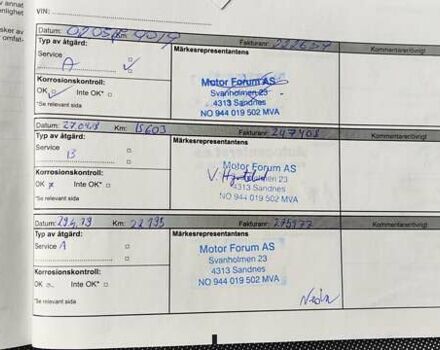 v annat
enlighet
sker av
omfat-
VIN:
Datum: Km: 9019 Fakturanr: Kommentarer/övrigt
Typ av åtgärd: Märkesrepresentantens
Service
A
Korrosionskontroll:
OK Inte OK*
*Se relevant sida
Motor Forum AS
Svanholmen 23
4313 Sandnes
NO 944 019 502 MVA
Datum: 27.04.18 Km: 15603 Fakturanr: 247408 Kommentarer/övrigt
Typ av åtgärd: Märkesrepresentantens
Service
B
Korrosionskontroll:
OK x Inte OK*
*Se relevant sida
Motor Forum AS
4313 Sandnes
NO 944 019 502 MVA
Datum: 29.4.19 Km: 22195 Fakturanr: 275977 Kommentarer/övrigt
Typ av åtgärd: Märkesrepresentantens
Service A
Korrosionskontroll:
OK Inte OK*
*Se relevant sida
Motor Forum AS
Svanholmen 23
4313 Sandnes
NO 944 019 502 MVA